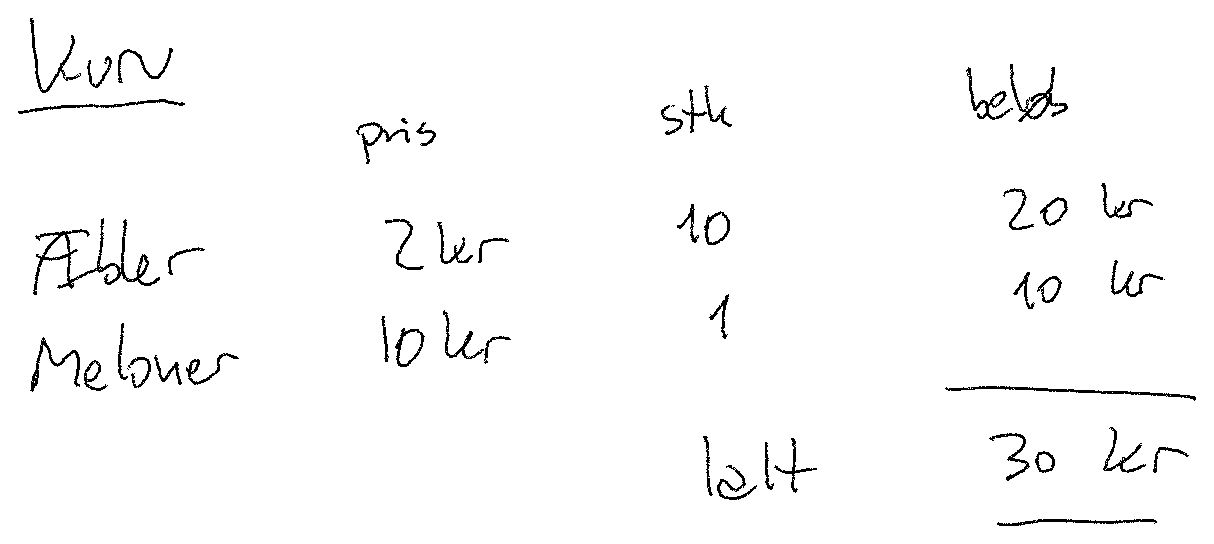 Kurv
pris stk beløb
Æbler 2 kr 10 20 kr
Meloner 10 kr 1 10 kr
Ialt 30 kr